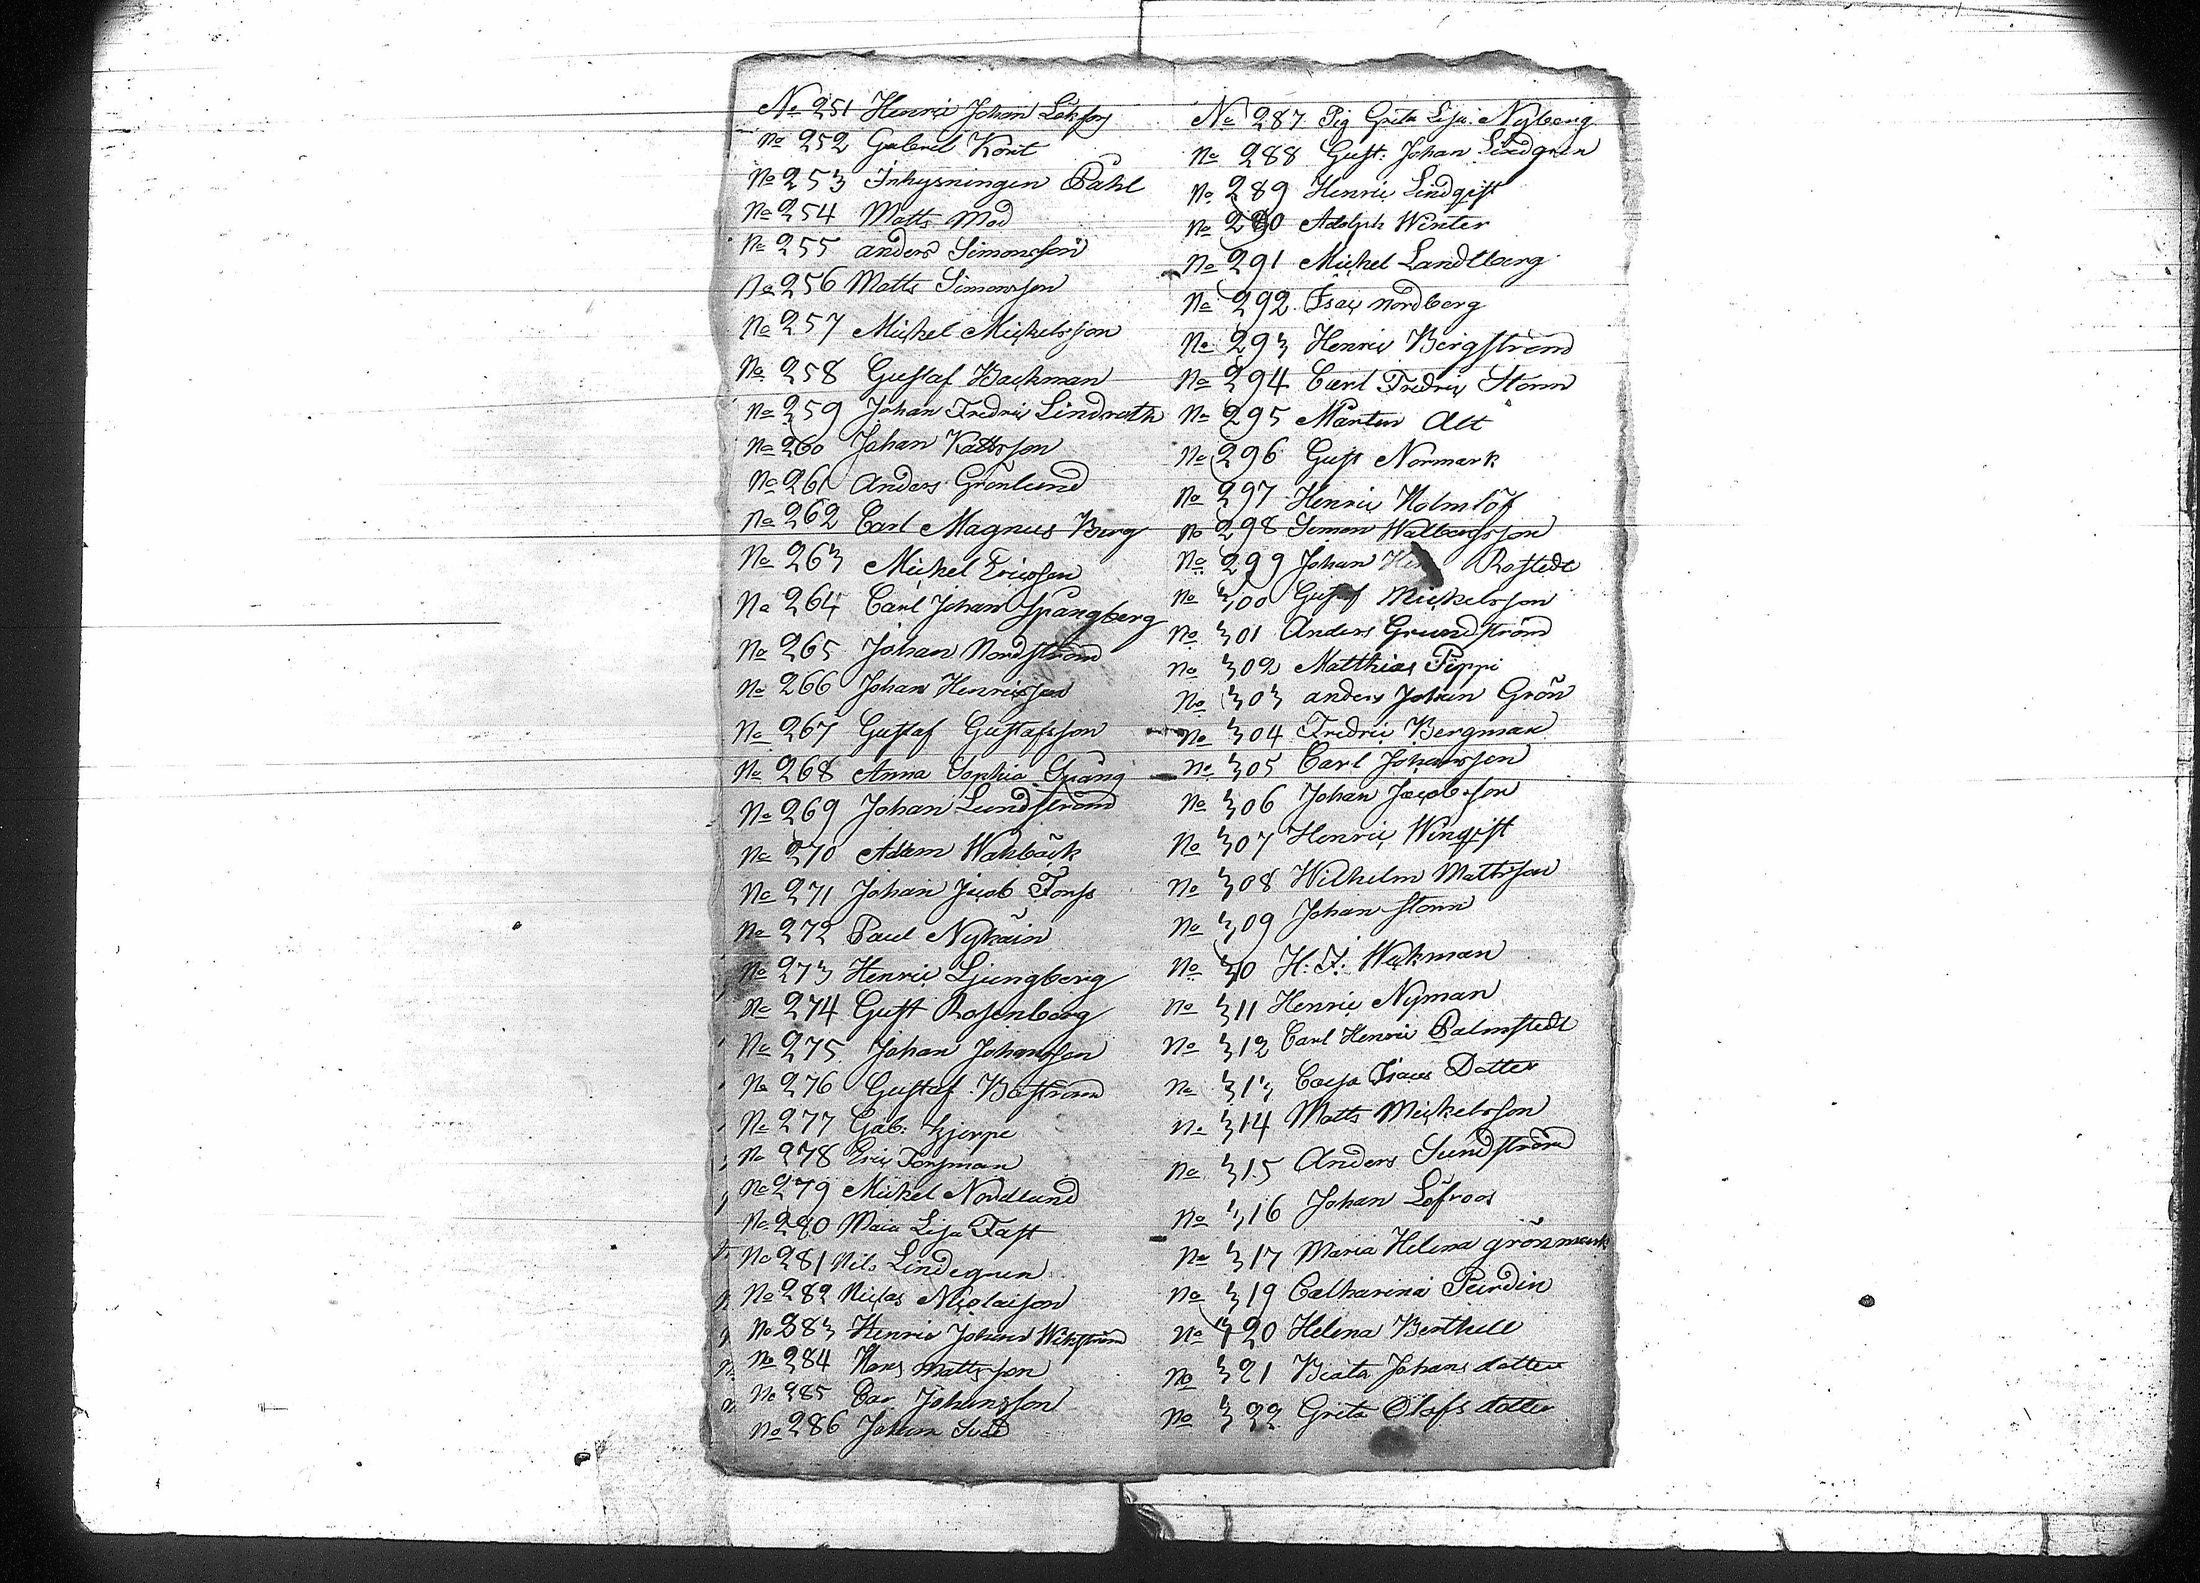 No 251 Henric Johan
No 252 Gabriel Kort
No 253 Inhysningen Påhl
No 254 Matts Mod
No 255 anders Simonsson
No 256 Matts Simonsson
No 257 Michel Michelsson
No 258 Gustaf Backman
No 259 Johan Fredric Lindroth
No 260 Johan
No 261 anders Grönlund
No 262 Carl Magnus Berg
No 263 Michel Ericsson
No 264 Carl Johan Spångberg
No 265 Johan Nordström
No 266 Johan Henricsson
No 267 Gustaf Gustafsson
No 268 Anna Sophia Spång
No 269 Johan Lundström
No 270 Adam Wahlbäck
No 271 Johan Jacob Forss
No 272 Paul
No 273 Henric Ljungberg
No 274 Gust Rosenberg
No 275 Johan Johansson
No 276 Gustaf Boström
No 277 Gab: Hjerpe
No 278 Eric Forsman
No 279 Michel Nordlund
No 280 Maia Lisa Fast
No 281 Nils Lindegren
No 282 Niclas Nicolaison
No 283 Henric Johans Wikström
No 284 Hans Mattsson
No 285 Car Johansson
No 286 Johan
No 287 Pig Greta Lisa Nyberg
No 288 Gust: Johan Lindgren
No 289 Henric Lindqist
No 290 Adolph Winter
No 291 Michel Landtberg
No 292 Isac nordberg
No 293 Henric Bergström
No 294 Carl Fredric Storm
No 295 Mårten Alt
No 296 Gust Normark
No 297 Henric Holmlöf
No 298 Simon
No 299 Johan Rostedt
No 300 Gustaf Mickelsson
No 301 Anders Grundström
No 302 Matthias Pippi
No 303 anders Johan Grön
No 304 Fredric Bergman
No 305 Carl Johansson
No 306 Johan Jacobsson
No 307 Henric Winqist
No 308 Wilhelm Mattsson
No 309 Johan Storm
No 30 H: F: Wickman
No 311 Henric Nyman
No 312 Carl Henric Palmstedt
No 313 Caisa Isacs Dotter
No 314 Matts Mickelsson
No 315 Anders Sundström
No 316 Johan Löfroos
No 317 Maria Helena grönmark
No 319 Catharina
No 320 Helena Berthell
No 321 Beata Johans dotter
No 322 Greta Olofs dotter